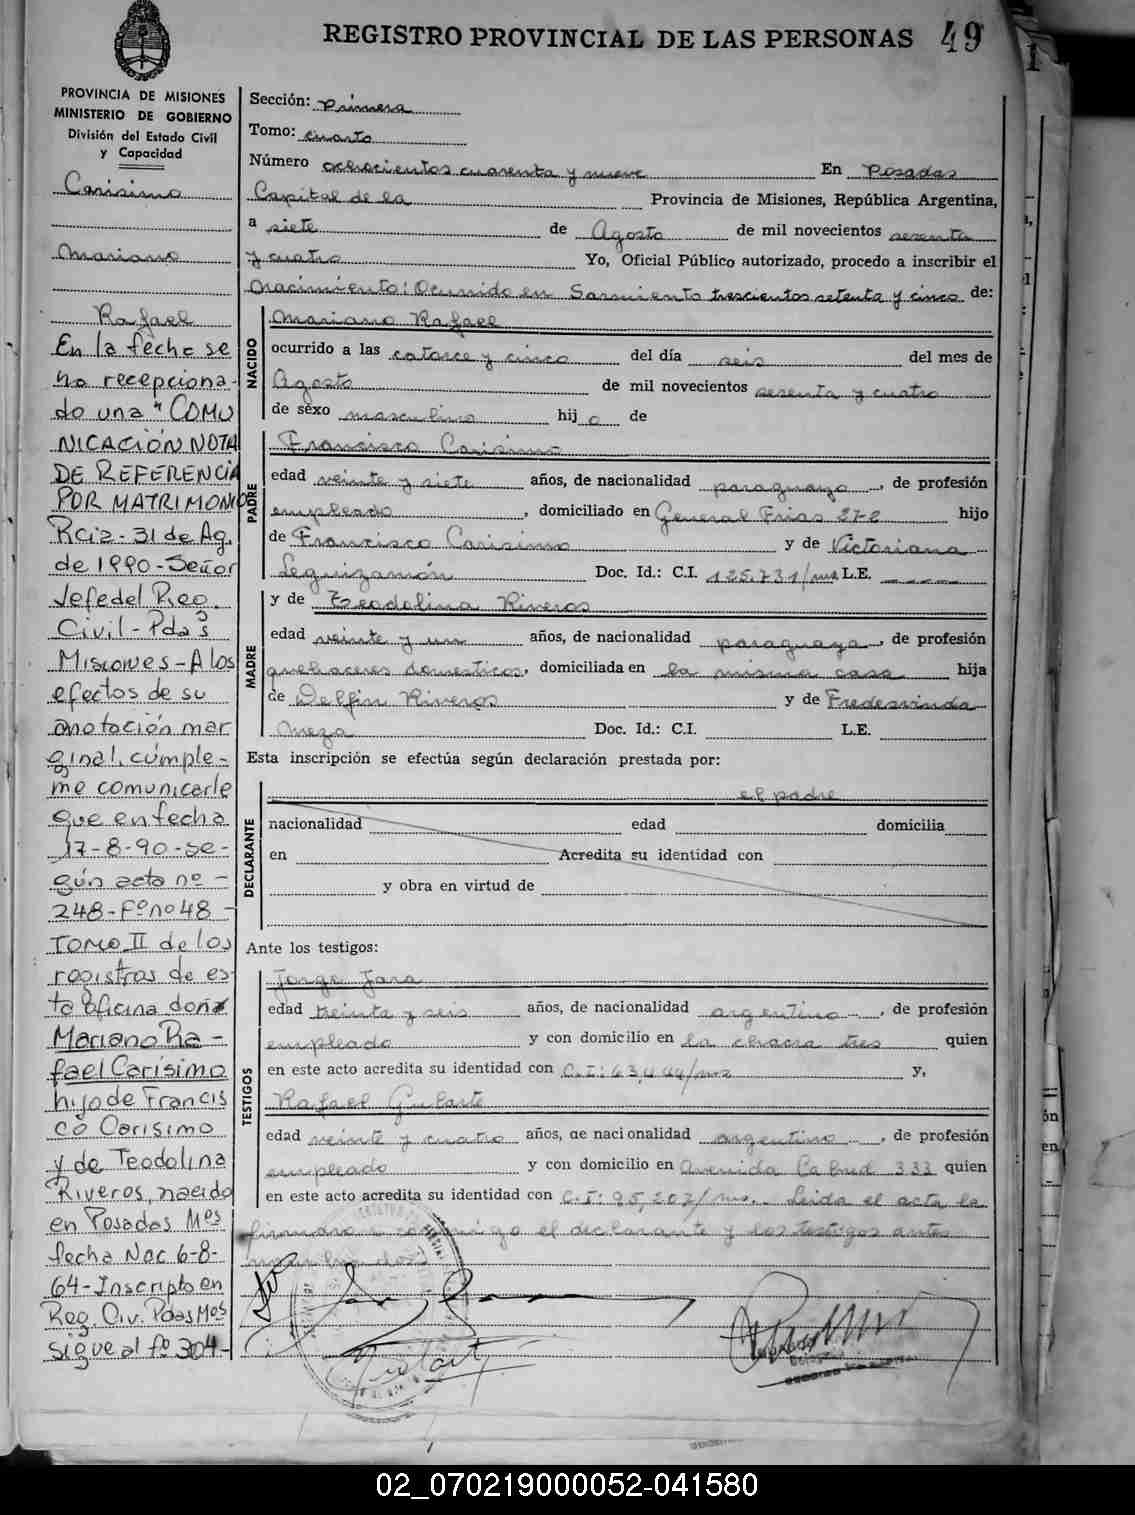 REGISTRO PROVINCIAL DE LAS PERSONAS 49
PROVINCIA DE MISIONES
MINISTERIO DE GOBIERNO
División del Estado Civil
y Capacidad
Carisimo
Mariano
Rafael
En la fecha se
ha recepciona-
do una "COMU
NICACIÓN NOTA
DE REFERENCIA
POR MATRIMONIO
Rcia-31 de Ag.
de 1990-Señor
Jefe del Reg.
Civil-Pdas
Misiones-A los
efectos de su
anotación mar
ginal, cúmple-
me comunicarle
que en fecha
17-8-90-se-
gún acta nº-
248-Fº nº 48-
TOMO II de los
registros de es-
ta oficina don
Mariano Ra-
fael Carísimo
hijo de Francis
co Carisimo
y de Teodolina
Riveros, nacido
en Posadas Mos
fecha Nac 6-8-
64-Inscripto en
Reg. Civ. Pdas Mos
sigue al fº 304-
Sección: primera
Tomo: cuarto
Número ochocientos cuarenta y nueve En Posadas
Capital de la Provincia de Misiones, República Argentina,
a siete de Agosto de mil novecientos sesenta
y cuatro Yo, Oficial Público autorizado, procedo a inscribir el
Nacimiento: Ocurrido en Sarmiento trescientos setenta y cinco de:
NACIDO
Mariano Rafael
ocurrido a las catorce y cinco del día seis del mes de
Agosto de mil novecientos sesenta y cuatro
de sexo masculino hij o de
PADRE
Francisco Carisimo
edad veinte y siete años, de nacionalidad paraguayo, de profesión
empleado, domiciliado en General Frias 272 hijo
de Francisco Carisimo y de Victoriana
Leguizamón Doc. Id.: C.I. 125.731/mis L.E.
MADRE
y de Teodolina Riveros
edad veinte y un años, de nacionalidad paraguaya, de profesión
quehaceres domesticos, domiciliada en la misma casa hija
de Delfin Riveros y de Fredesvinda
Meza Doc. Id.: C.I. L.E.
Esta inscripción se efectúa según declaración prestada por:
DECLARANTE
el padre
nacionalidad edad domicilia
en Acredita su identidad con
y obra en virtud de
Ante los testigos:
TESTIGOS
Jorge Jara
edad treinta y seis años, de nacionalidad argentino, de profesión
empleado y con domicilio en la chacra tres quien
en este acto acredita su identidad con C.I: 63,444/mis y,
Rafael Gularte
edad veinte y cuatro años, de nacionalidad argentino, de profesión
empleado y con domicilio en Avenida Cabred 333 quien
en este acto acredita su identidad con C.I: 95,202/mis. Leida el acta la
firmaron conmigo el declarante y los testigos antes
02_070219000052-041580